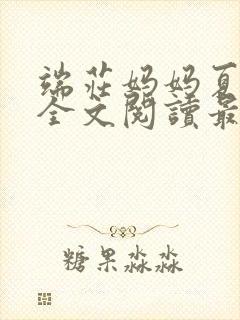 端莊妈妈夏
全文閱讀最
糖果淼淼